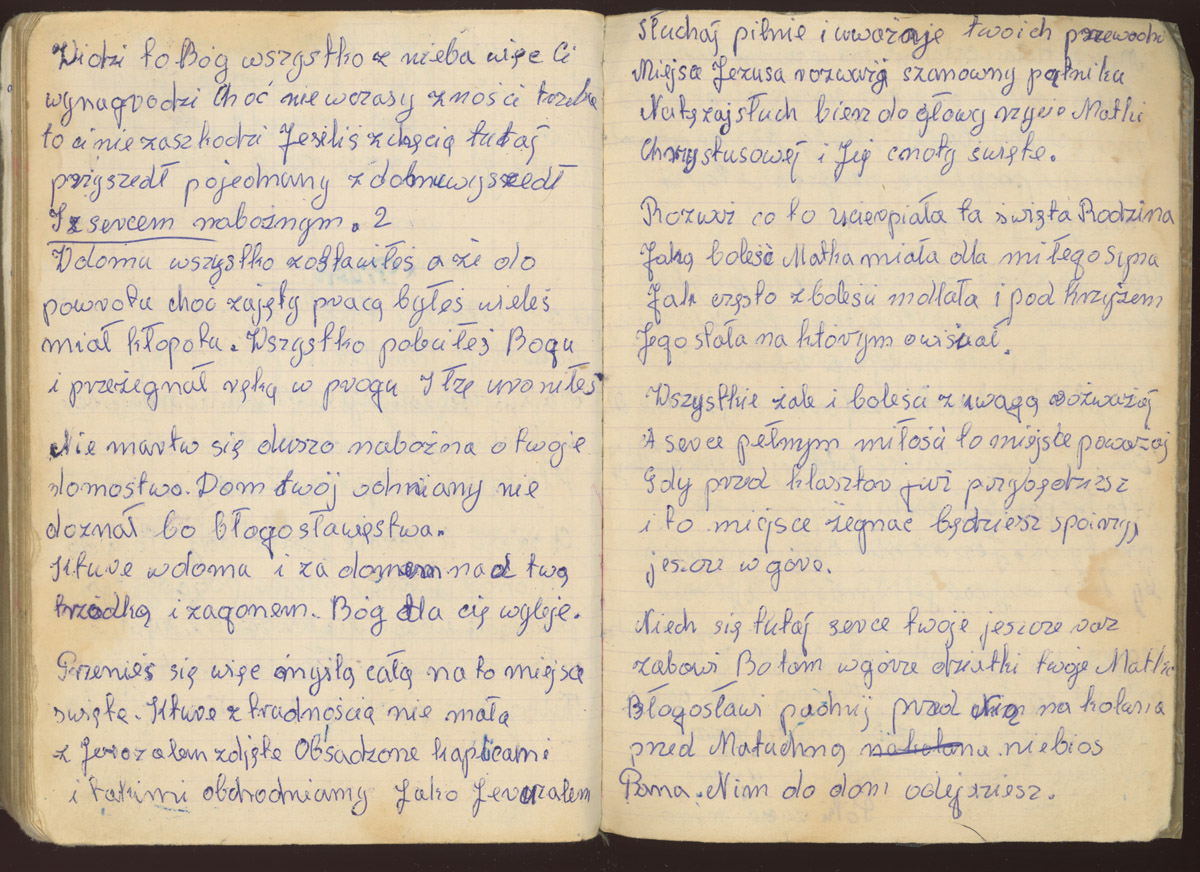 Widzi to Bóg wszystko z nieba więc Ci
wynagrodzi Choć niewczasy znośći trzeba
to ci nie zaszkodzi Jeżeliś z chęcią tutaj
przyszedł pojednany z dobrm wyszedł
I z sercem nabożnym. 2
W domu wszystko zostawiłoś aże do
powrotu choć zajęty pracą byłeś wieleś
miał kłopotu. Wszystko poleciłeś Bogu
i przeżegnał ręką w progu I łzę uroniłeś
Nie martw się duszo nabożna o twoje
domostwo. Dom twój ochniany nie
doznał bo błogosławięstwa.
Kture w doma i za domem nad twą
trzódką i zagonem. Bóg dla cię wyleje.
Przenieś się więc myślą całą na to miejsce
święte. Kture z trudnością nie małą
z Jerozalem zdjęte Obsadzone kaplicami
i takimi obchodniamy Jako Jeruzalem
Słuchaj pilnie i uważaje twoich przewodn
Miejsca Jezusa rozważaj szanowny pątniku
Natężaj słuch bierz do głowy życie Matki
Chrystusowej i Jej cnoty święte.
Rozważ co to ucierpiała ta święta Rodzina
Jaką boleść Matka miała dla miłego syna
Jak często z boleści mdlała i pod krzyżem
Jego stała na którym owisiał.
Wszystkie żale i boleści z uwagą rozważaj
A serce pełnym miłości to miejsce poważaj
Gdy przed klasztor już przybędziesz
i to miejsce żegnać będziesz spojrzyj
jeszcze w górę.
Niech się tutaj serce twoje jeszcze raz
zabawi Bo tam w górze dziatki twoje Matka
Błogosławi padnij przed Nią na kolana
przed Matuchną na kolana niebios
Pana. Nim do dom odejdziesz.